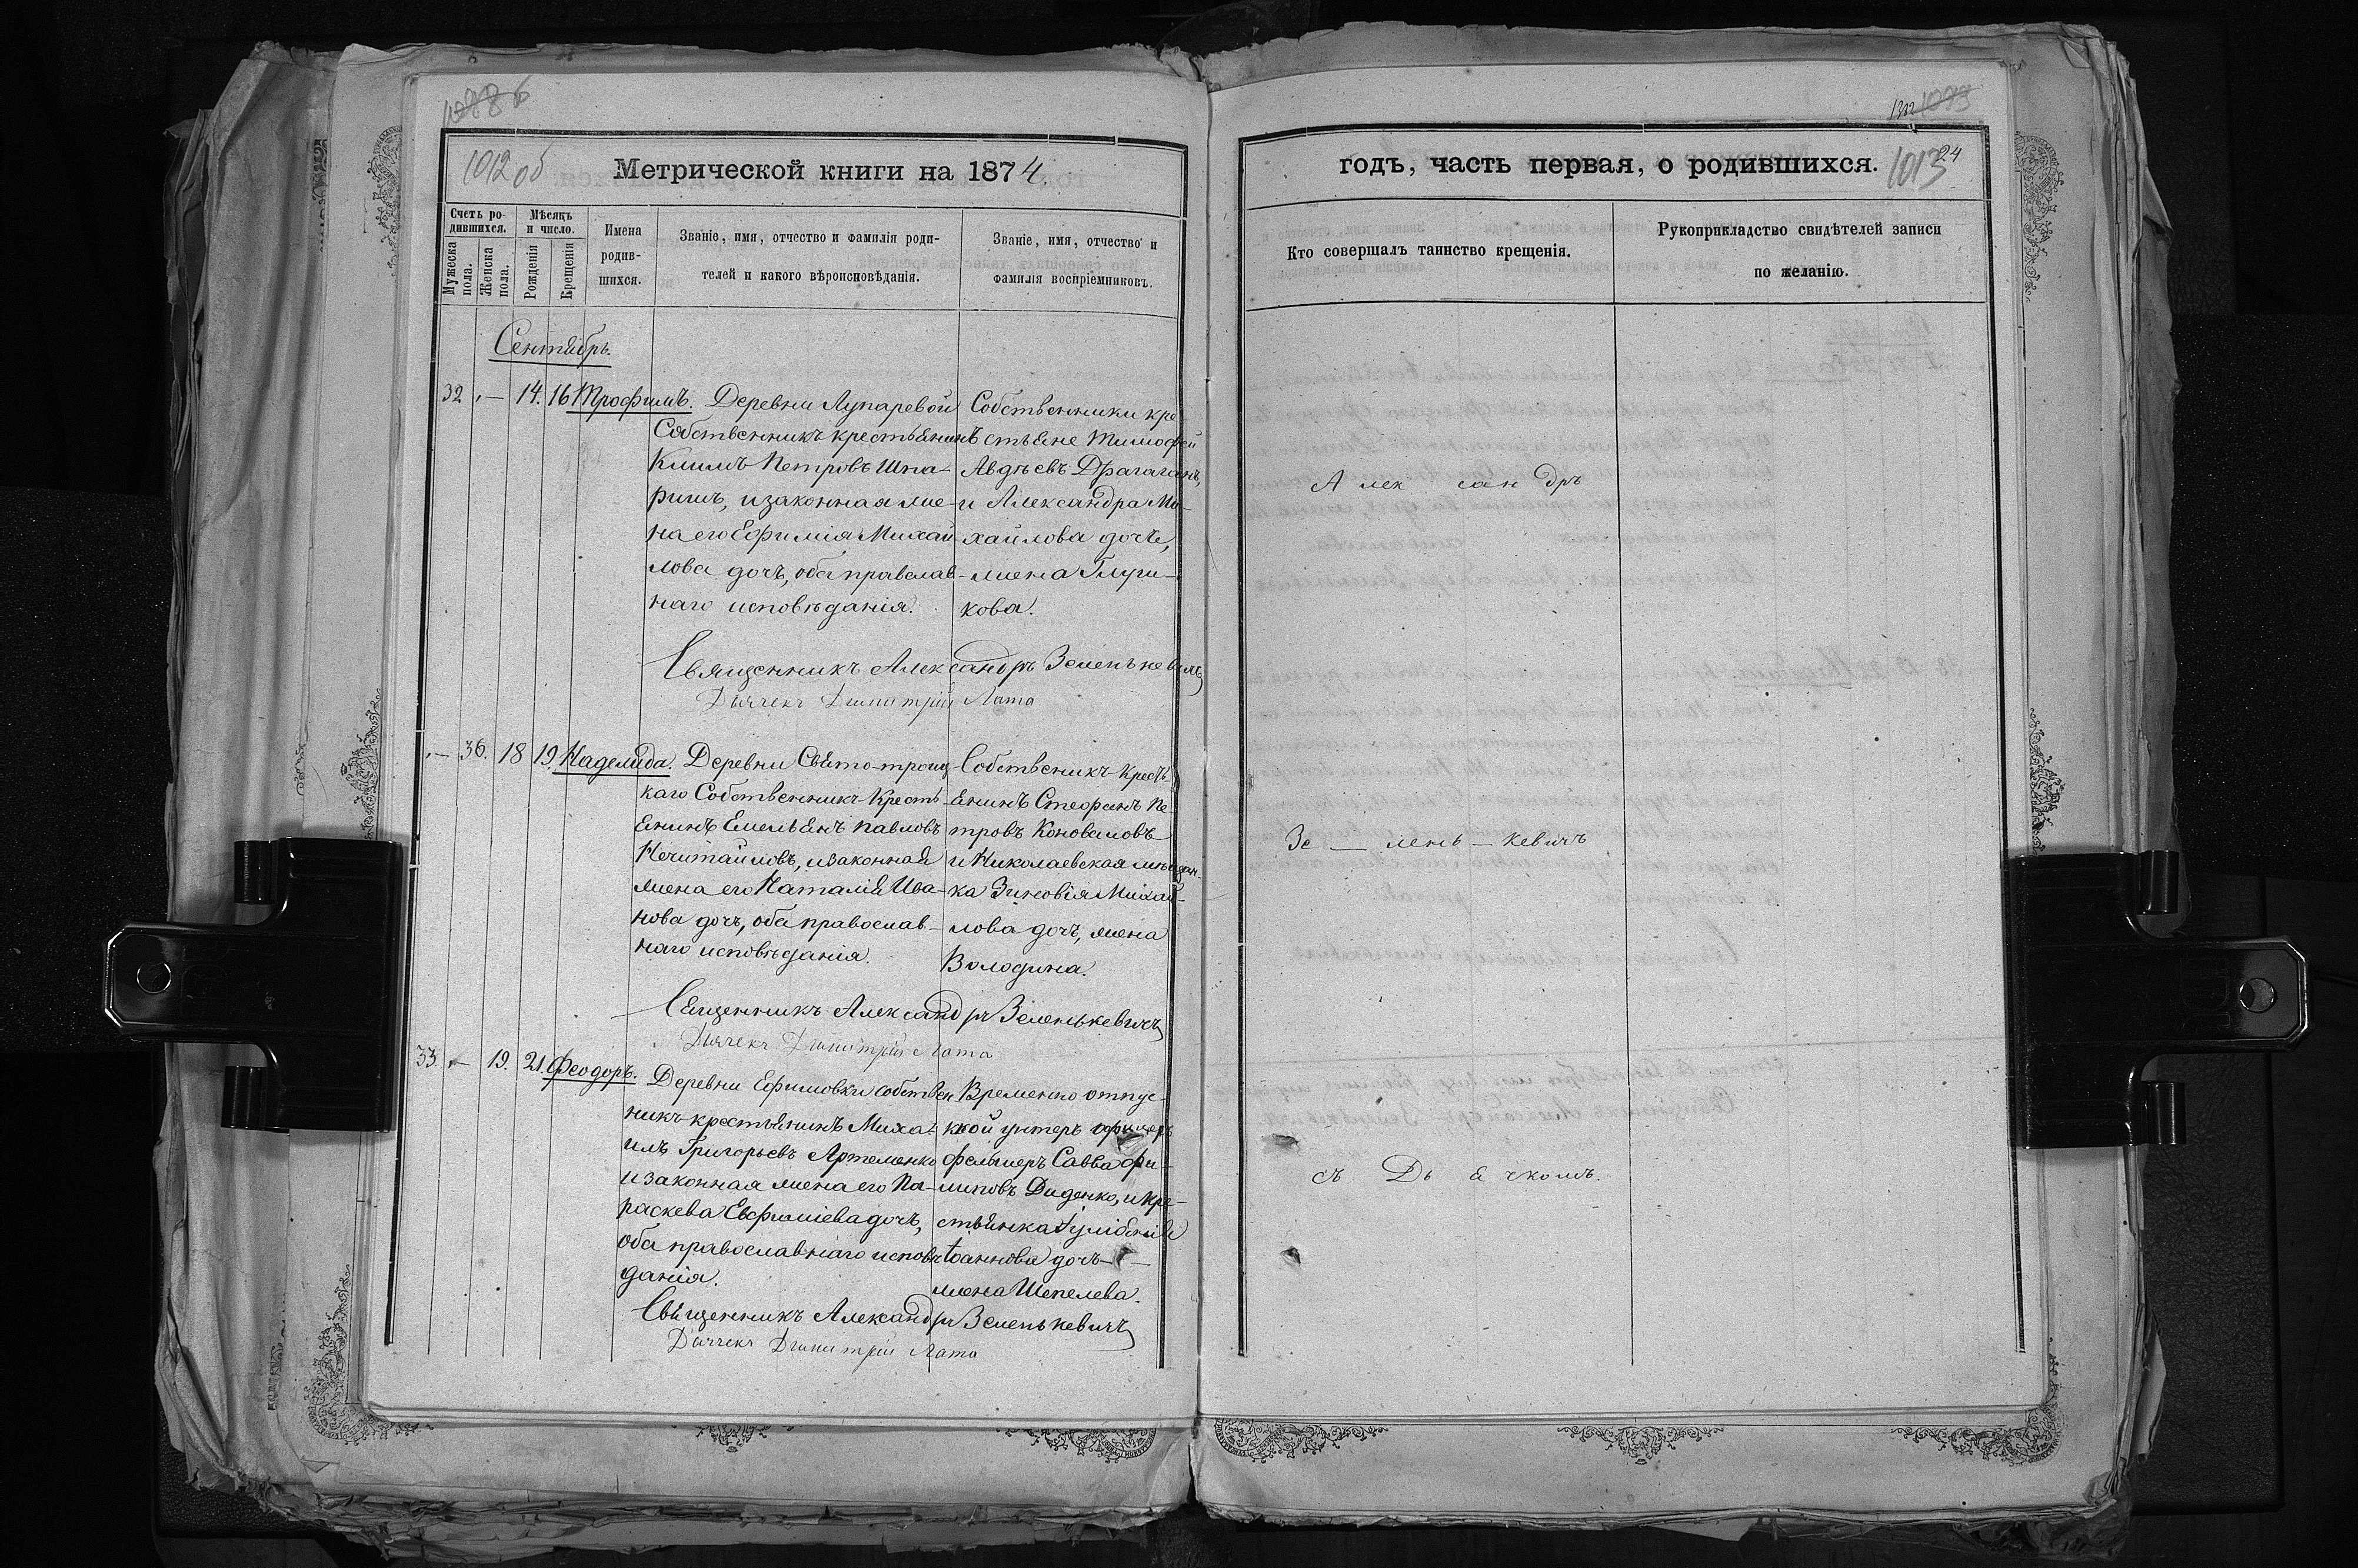 1012 об
Метрической книги на 1874.
Счетъ ро-
дившихся.
Мужеска пола.
Женска пола.
Мѣсяцъ
и число.
Рожденія
Крещенія
Имена
родив-
шихся.
Званіе, имя, отчество и фамилія роди-
телей и какого вѣроисповѣданія.
Званіе, имя, отчество и
фамилія воспріемниковъ.
Сентябрь.
32 — 14. 16 Трофимъ.
Деревни Лупаревой
Собственникъ крестьянинъ
Климъ Петровъ Шпа-
ришъ, и законная же-
на его Ефимія Михай-
лова дочь, оба православ-
наго исповѣданія.
Собственники кре
стьяне Тимофей
Авдѣевъ Драгаганъ,
и Александра Ми-
хайлова дочь,
жена
кова.
Священникъ Александръ Зеленькевичъ
Дьячекъ Димитрій Лата
— 36. 18 19
Деревни Свято-троиц
каго Собственникъ Кресть
янинъ Емельянъ Павловъ
Нечитайловъ, и законная
жена его Наталія Ива-
нова дочь, оба православ-
наго исповѣданія.
Собственникъ Кресть
янинъ Стефанъ Пе
тровъ Коноваловъ
и Николаевская мѣщан-
ка Зиновія Михай-
лова дочь, жена
Володина.
Священникъ Александръ Зеленькевичъ
Дьячекъ Димитрій Лата
33 — 19. 21. Феодоръ.
Деревни Ефимовки собствен
никъ крестьянинъ Миха-
илъ Григорьевъ Артеменко
и законная жена его Па-
раскева Евфиміева дочь,
оба православнаго исповѣ
данія.
Временно отпус-
кной унтеръ офицеръ
фельшеръ Савва Фи-
липовъ Диденко, и кре-
стьянка
Іоаннова дочь —
жена Шепелева.
Священникъ Александръ Зеленькевичъ
Дьячекъ Димитрій Лата
годъ, часть первая, о родившихся.
1013
24
Кто совершалъ таинство крещенія.
Рукоприкладство свидѣтелей записи
по желанію.
Алек сан дръ
Зе — лень — кевичъ
съ Дь я чкомъ.